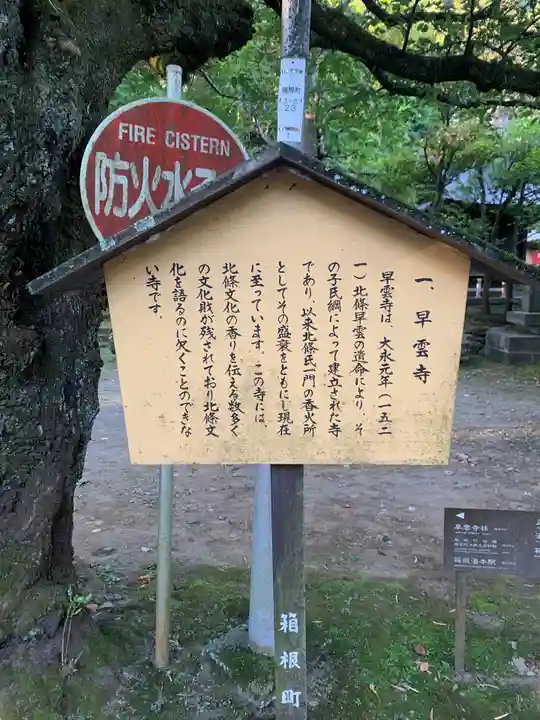 FIRE CISTERN
防火水
箱根町
23
一、早雲寺
早雲寺は、大永元年(一五二
一)北條早雲の遺命により、そ
の子氏綱によって建立された寺
であり、以来北條氏一門の香火所
としてその盛衰をともにし現在
に至っています。この寺には
北條文化の香りを伝える数多く
の文化財が残されており北條文
化を語るのに欠くことのできな
い寺です。
箱根町
早雲寺林
箱根湯本駅